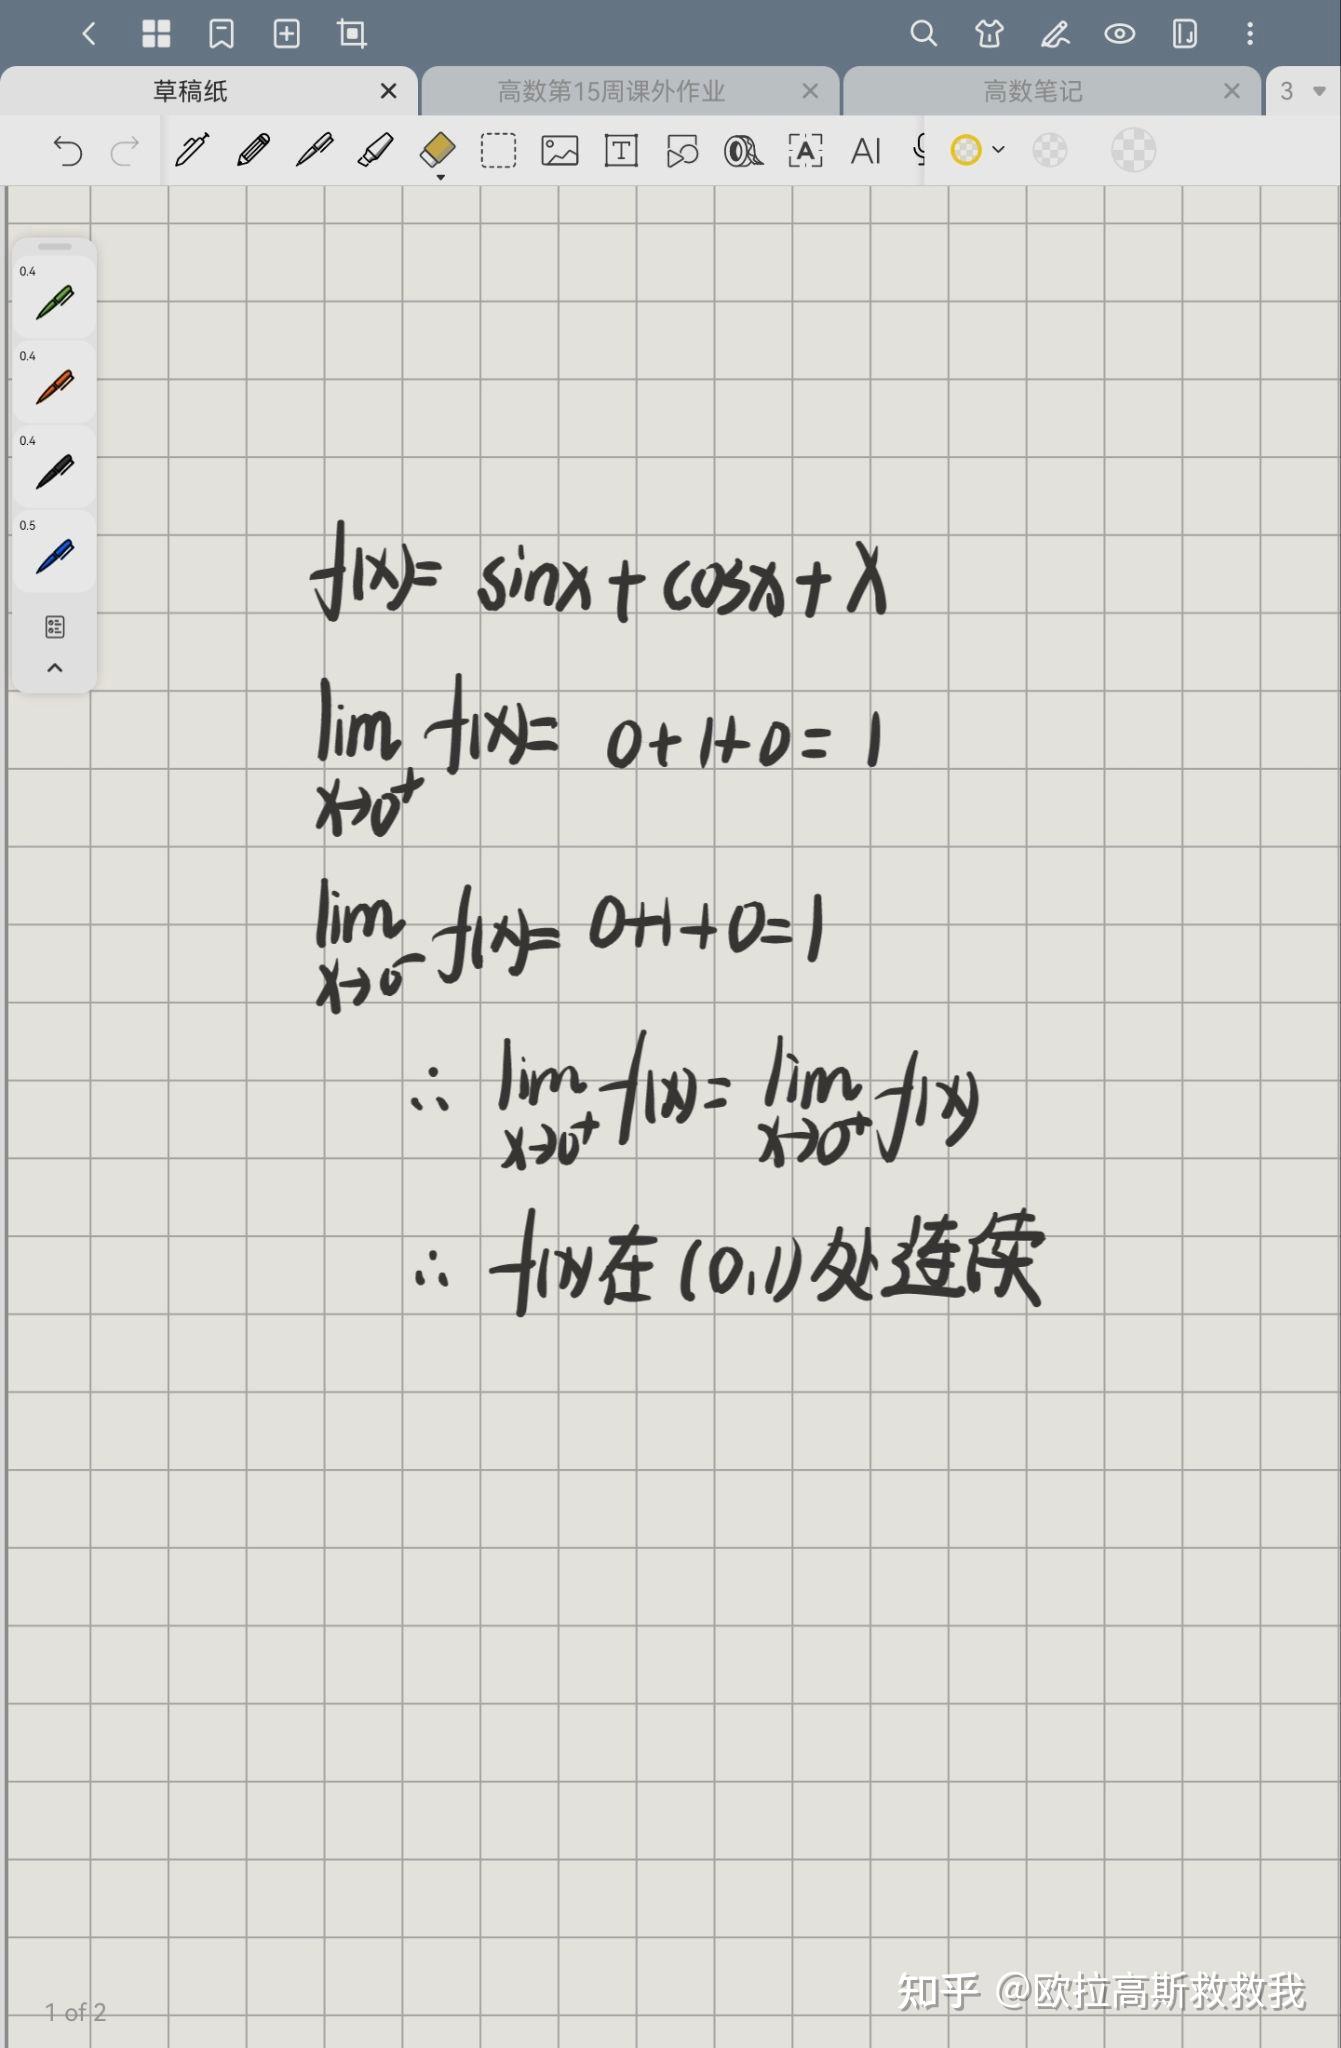 草稿纸 高数第15周课外作业 高数笔记 3
0.4
0.4
0.4
0.5
f(x)= sinx + cosx + x
lim f(x)= 0+1+0=1
x→0⁺
lim f(x)= 0+1+0=1
x→0⁻
∴ lim f(x)= lim f(x)
x→0⁺ x→0⁺
∴ f(x)在(0,1)处连续
知乎 @欧拉高斯救救我
1 of 2